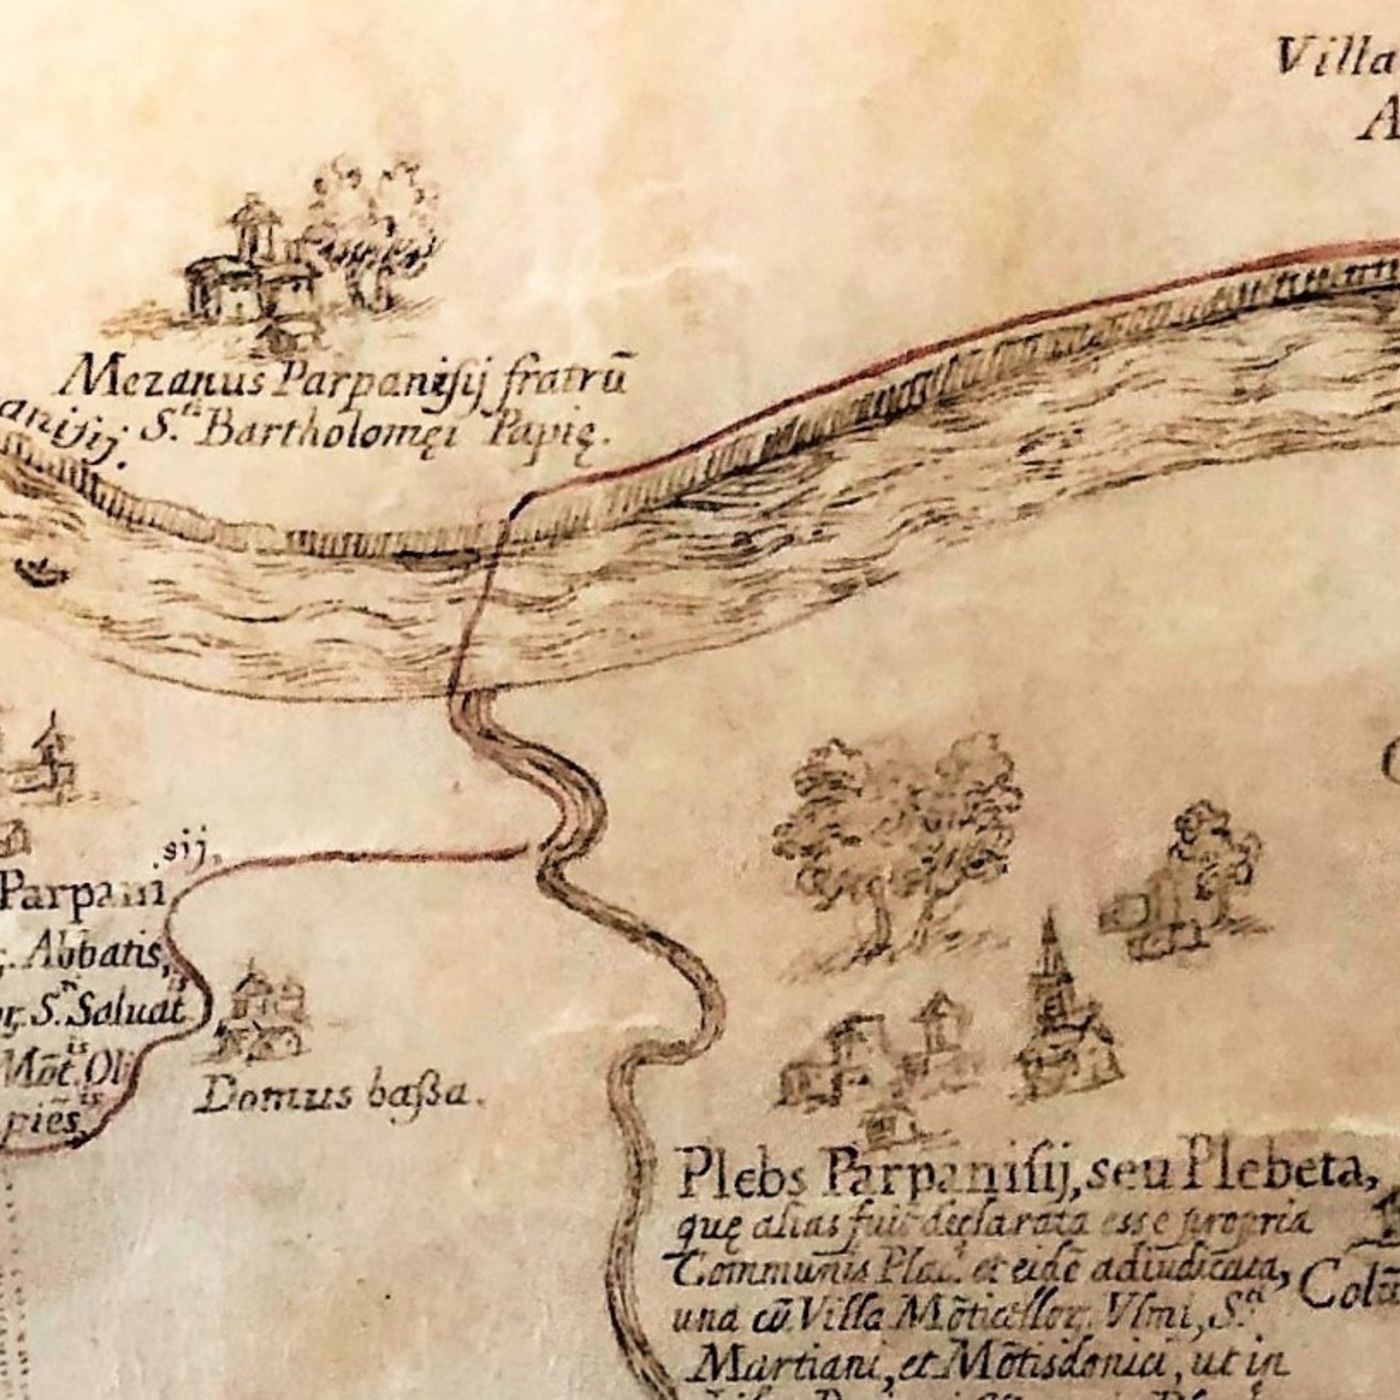 Villa
A
Mezanus Parpanisij fratrū
S.ti Bartholomęi Papię.
anisij.
sij.
Parpani
Abbatis,
S.ti Saluat.is
Mōt.is Oli
piēs,is
Domus baßa.
Plebs Parpanisij, seu Plebeta,
quę alias fuit declarata esse propria
Communis Plac. et eidē adiudicata,
Colū
una cū Villa Mōticellor. Vlmi, S.ti
Martiani, et Mōtisdonici, ut in